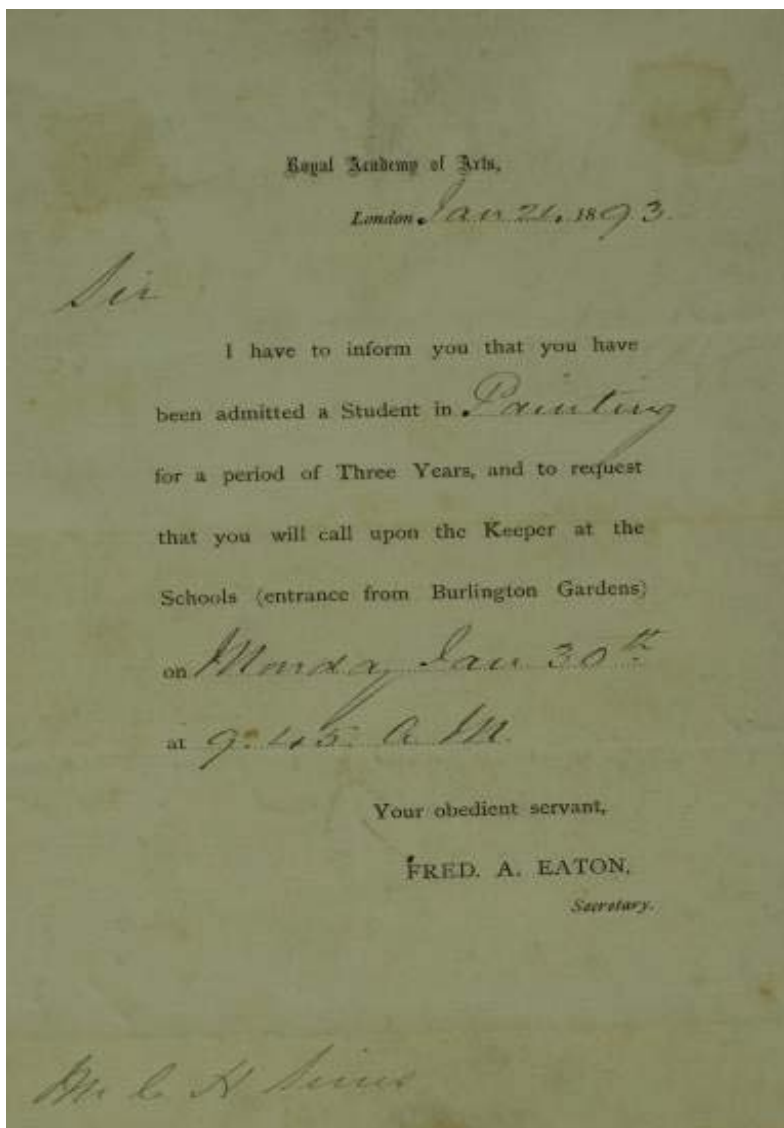 Royal Academy of Arts,
London Jan 21, 1893.
Sir
I have to inform you that you have
been admitted a Student in Painting
for a period of Three Years, and to request
that you will call upon the Keeper at the
Schools (entrance from Burlington Gardens)
on Monday Jan 30th
at 9.45. A M.
Your obedient servant,
FRED. A. EATON,
Secretary.
Mr C H Sims